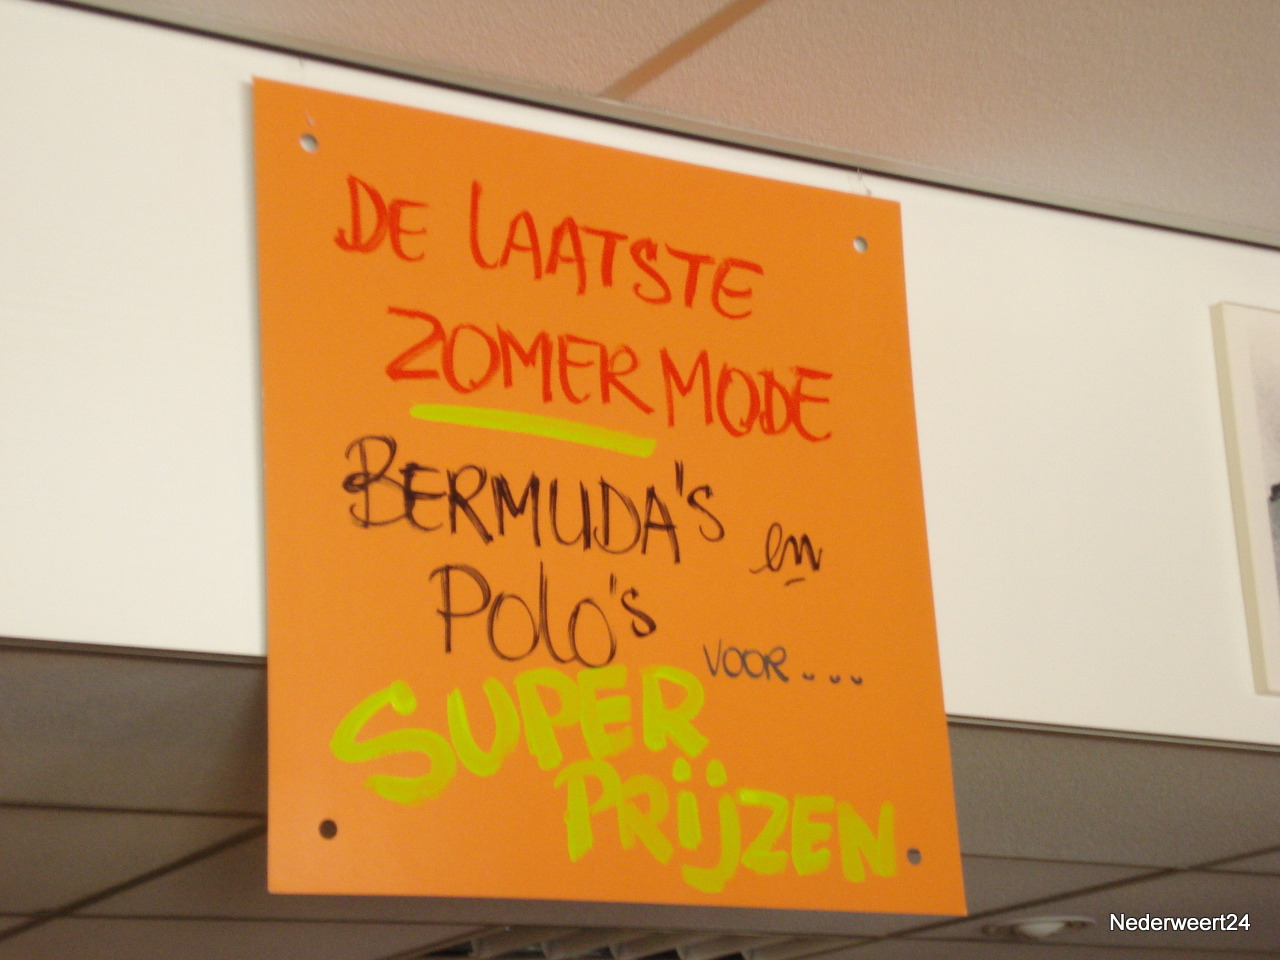 DE LAATSTE
ZOMER MODE
BERMUDA'S en
POLO'S VOOR...
SUPER
PRIJZEN
Nederweert24